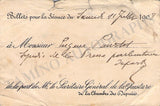 Billets pour la Séance du Samedi 11 Juillet 190
à Monsieur Eugène
Syndic de la Presse parlementaire
de la part de M. le Secrétaire Général de la Questure
de la Chambre des Députés